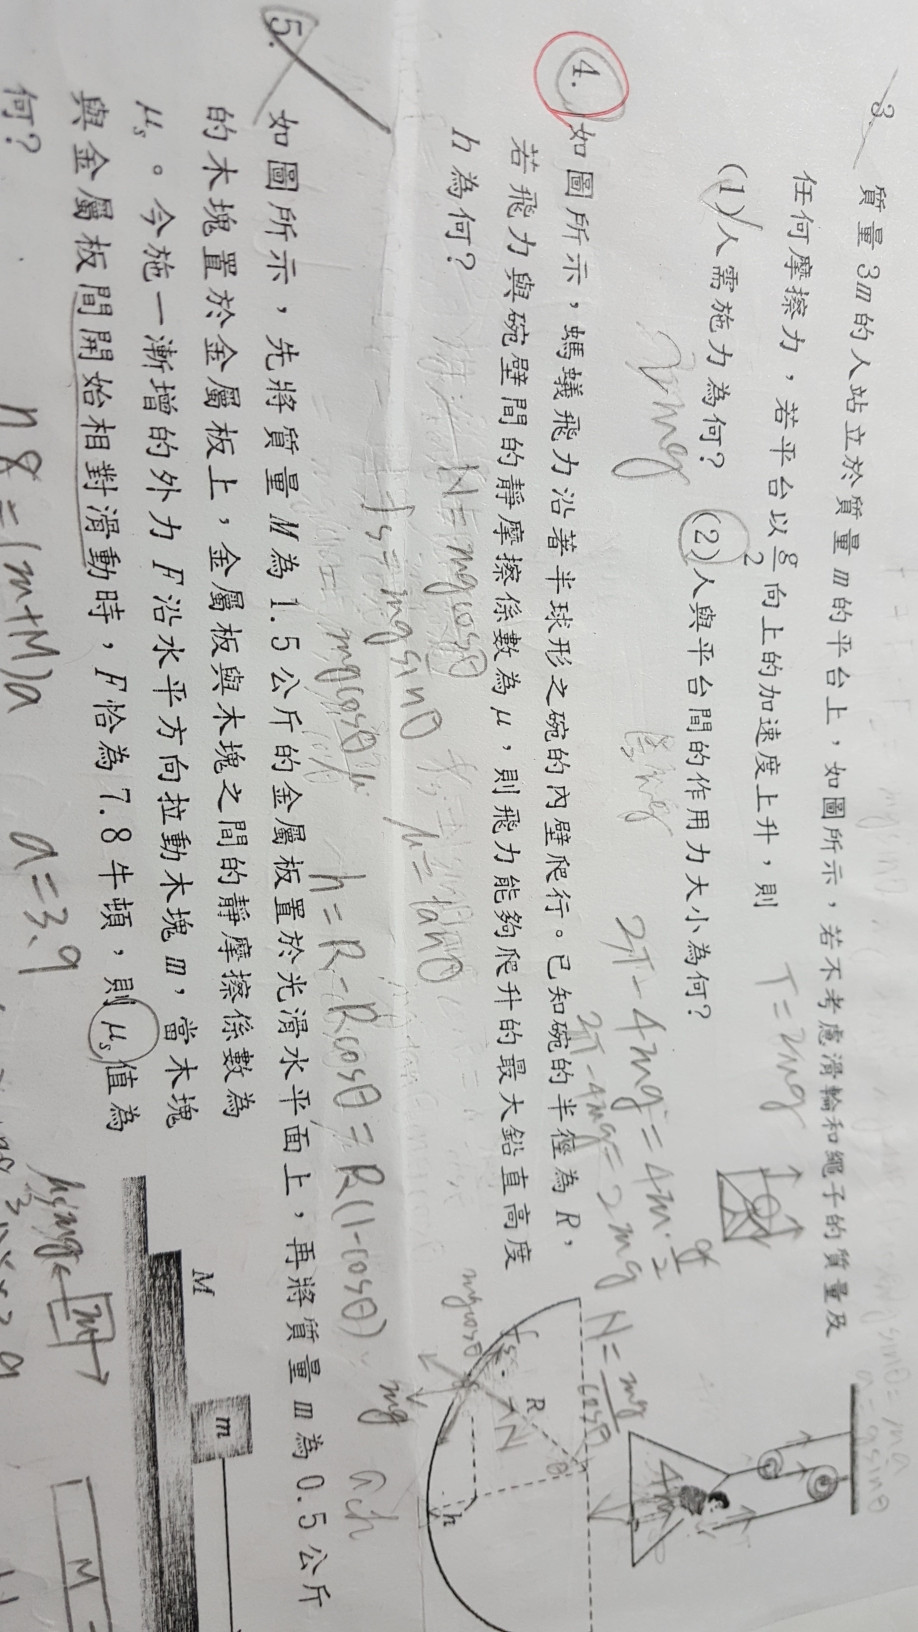 3. 質量3m的人站立於質量m的平台上，如圖所示，若不考慮滑輪和繩子的質量及
任何摩擦力，若平台以g/2向上的加速度上升，則
(1)人需施力為何？ (2)人與平台間的作用力大小為何？
T=2mg
2mg
2T-4mg=4m·g/2
2T-4mg=2mg
4m
4. 如圖所示，螞蟻飛力沿著半球形之碗的內壁爬行。已知碗的半徑為R，
若飛力與碗壁間的靜摩擦係數為μ，則飛力能夠爬升的最大鉛直高度
h為何？
N=mg/cosθ
N=mgcosθ
fs=mgsinθ
μ=tanθ
mgcosθμ
h=R-Rcosθ=R(1-cosθ)
R
θ
N
fs
h
mgcosθ
mg
5. 如圖所示，先將質量M為1.5公斤的金屬板置於光滑水平面上，再將質量m為0.5公斤
的木塊置於金屬板上，金屬板與木塊之間的靜摩擦係數為
μs。今施一漸增的外力F沿水平方向拉動木塊m，當木塊
與金屬板間開始相對滑動時，F恰為7.8牛頓，則μs值為
何？
M
m
=(m+M)a
a=3.9
μsmg
m
M